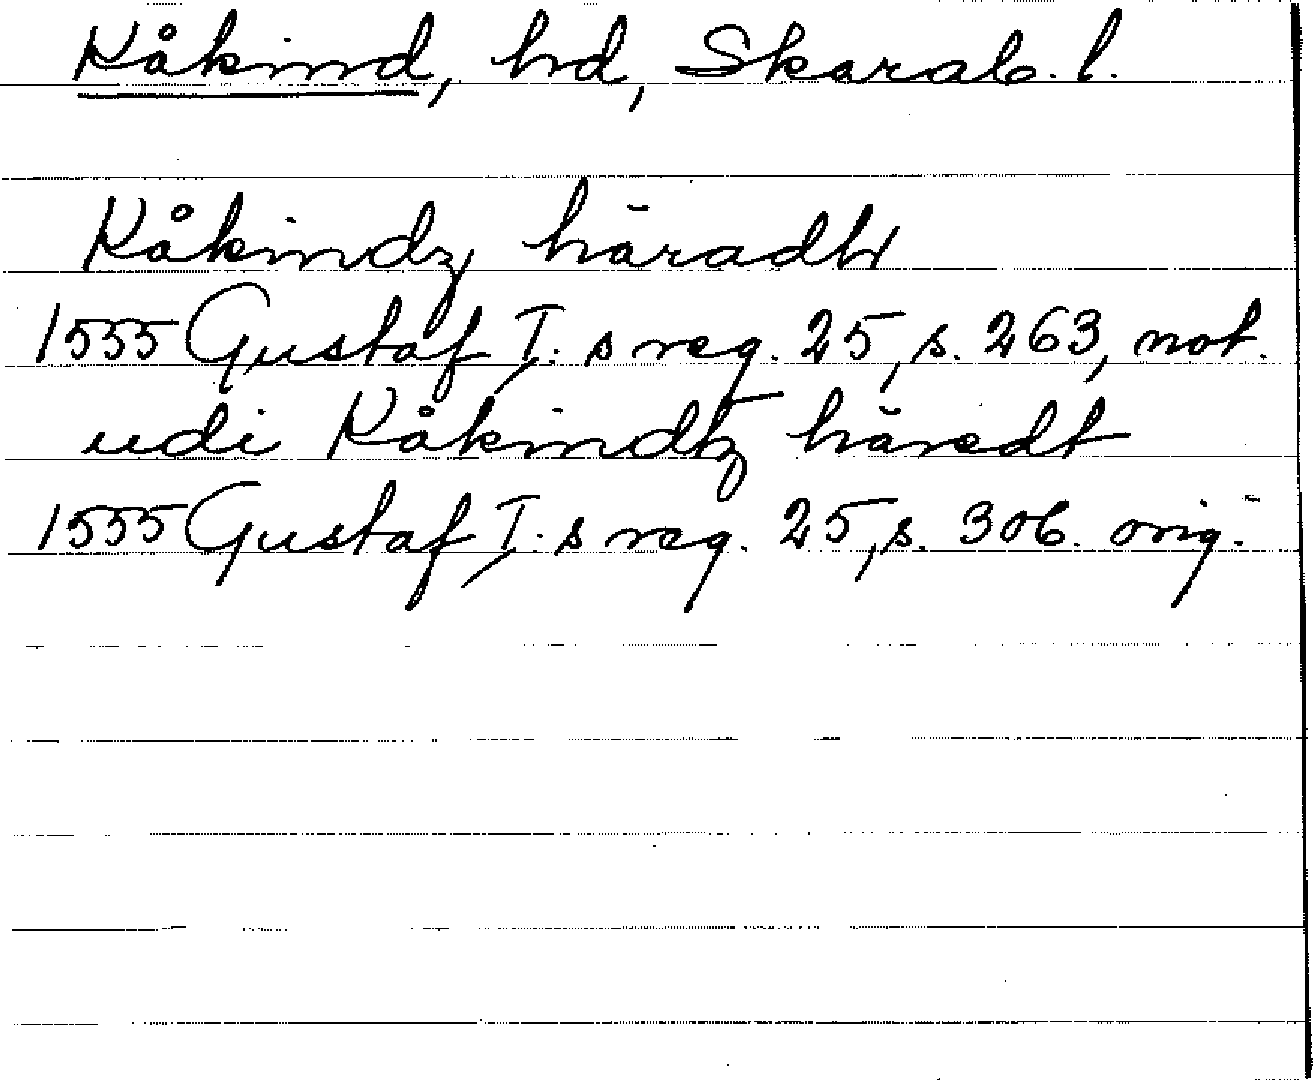 Kåkind, hd, Skarab. l.
Kåkindz häradh
1555 Gustaf I:s reg. 25, s. 263, not.
udi Kåkindtz häredt
1555 Gustaf I:s reg. 25, s. 306. orig.